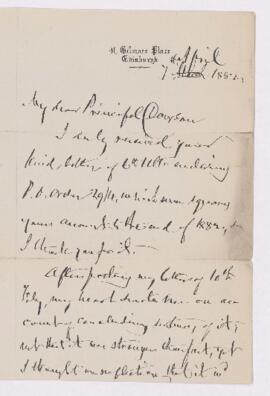 Gilmore Place
Edinburgh
April
7 1882
My dear Principal Dawson
I duly received your
kind letter of Ult. enclosing
P. O. order 29/4, which squares
your account to the end of 1882,
I thank you for it.
After posting my letter of 10th
Feby, my heart smote me on ac-
count of concluding sentence of it;
not that it was stronger than fact, yet
I thought on reflection that it wd